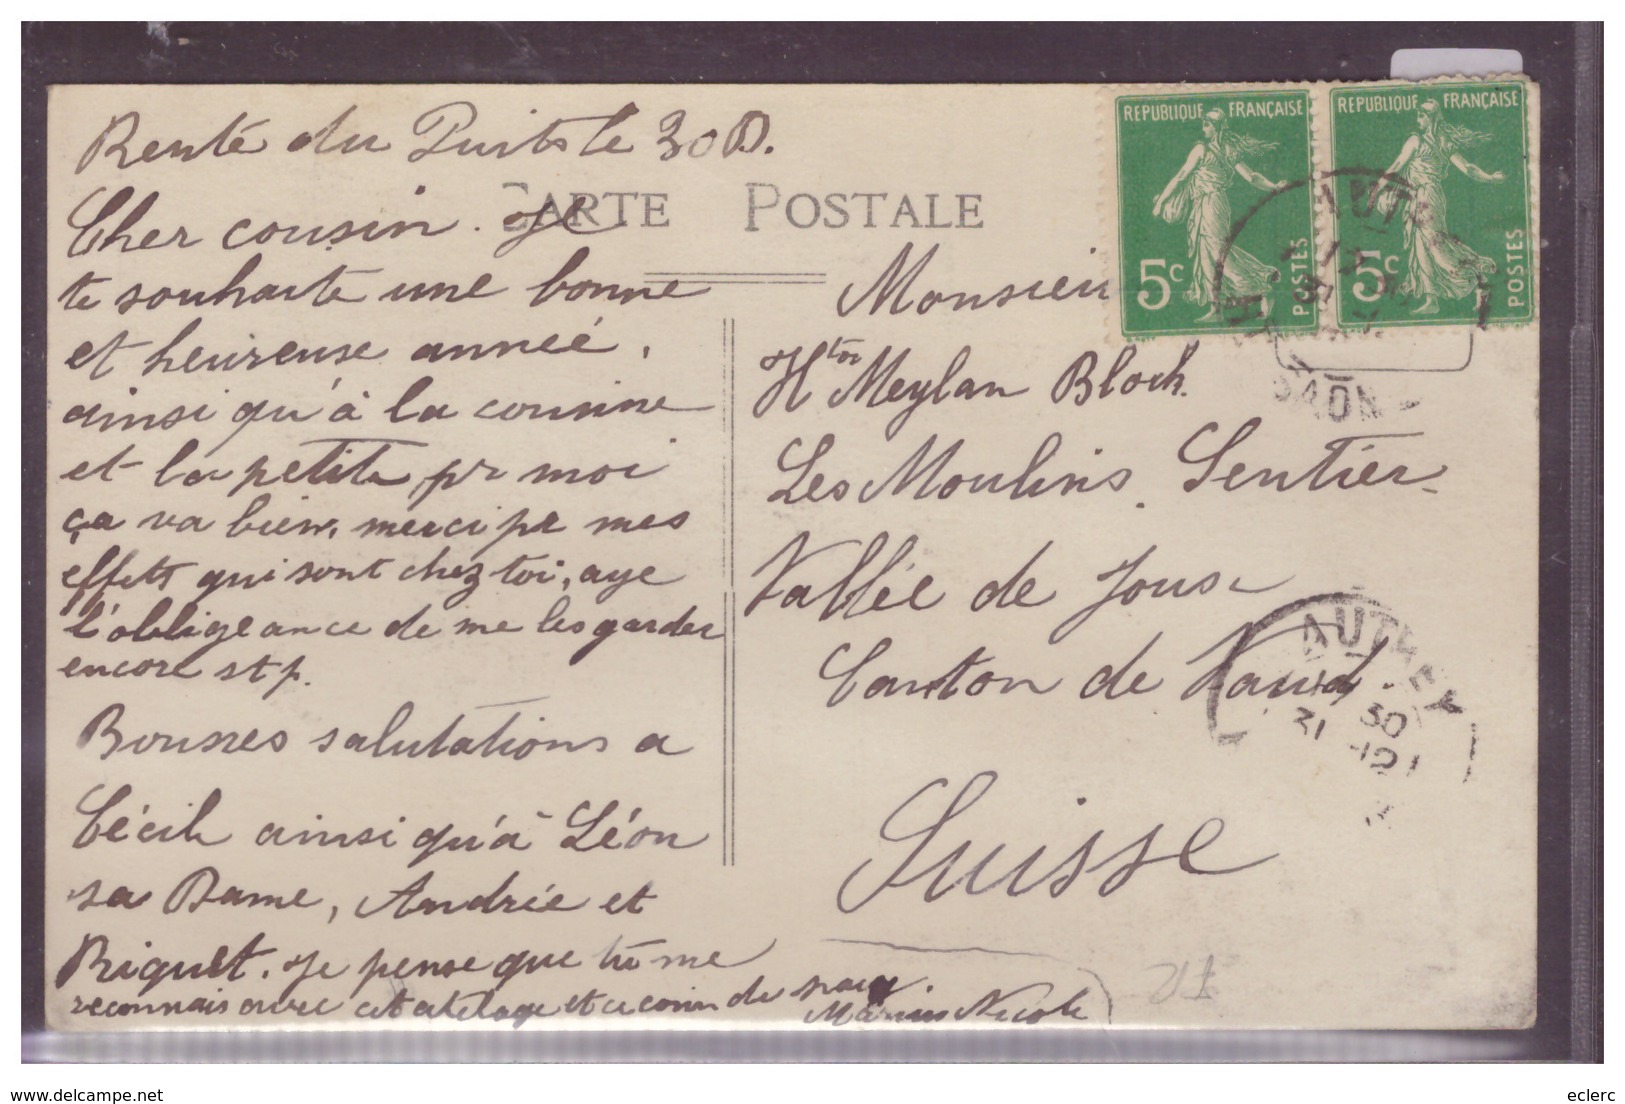 Renté du Puits le 30 D.
CARTE POSTALE
Cher cousin. Je
te souhaite une bonne
et heureuse année,
ainsi qu'à la cousine
et la petite, pr moi
ça va bien, merci pr mes
effets qui sont chez toi, aye
l'obligeance de me les garder
encore stp.
Bonnes salutations a
Cécile ainsi qu'à Léon
sa Dame, Andrée et
Riquet. Je pense que tu me
reconnais avec cet atelage et ce coin de pays.
Marius Nicole
REPUBLIQUE FRANÇAISE
5c POSTES
REPUBLIQUE FRANÇAISE
5c POSTES
Monsieur
Htor Meylan Bloch.
Les Moulins. Sentier
Vallée de Joux
Canton de Vaud.
Suisse
AUTHEY
30
31 -12
eclerc